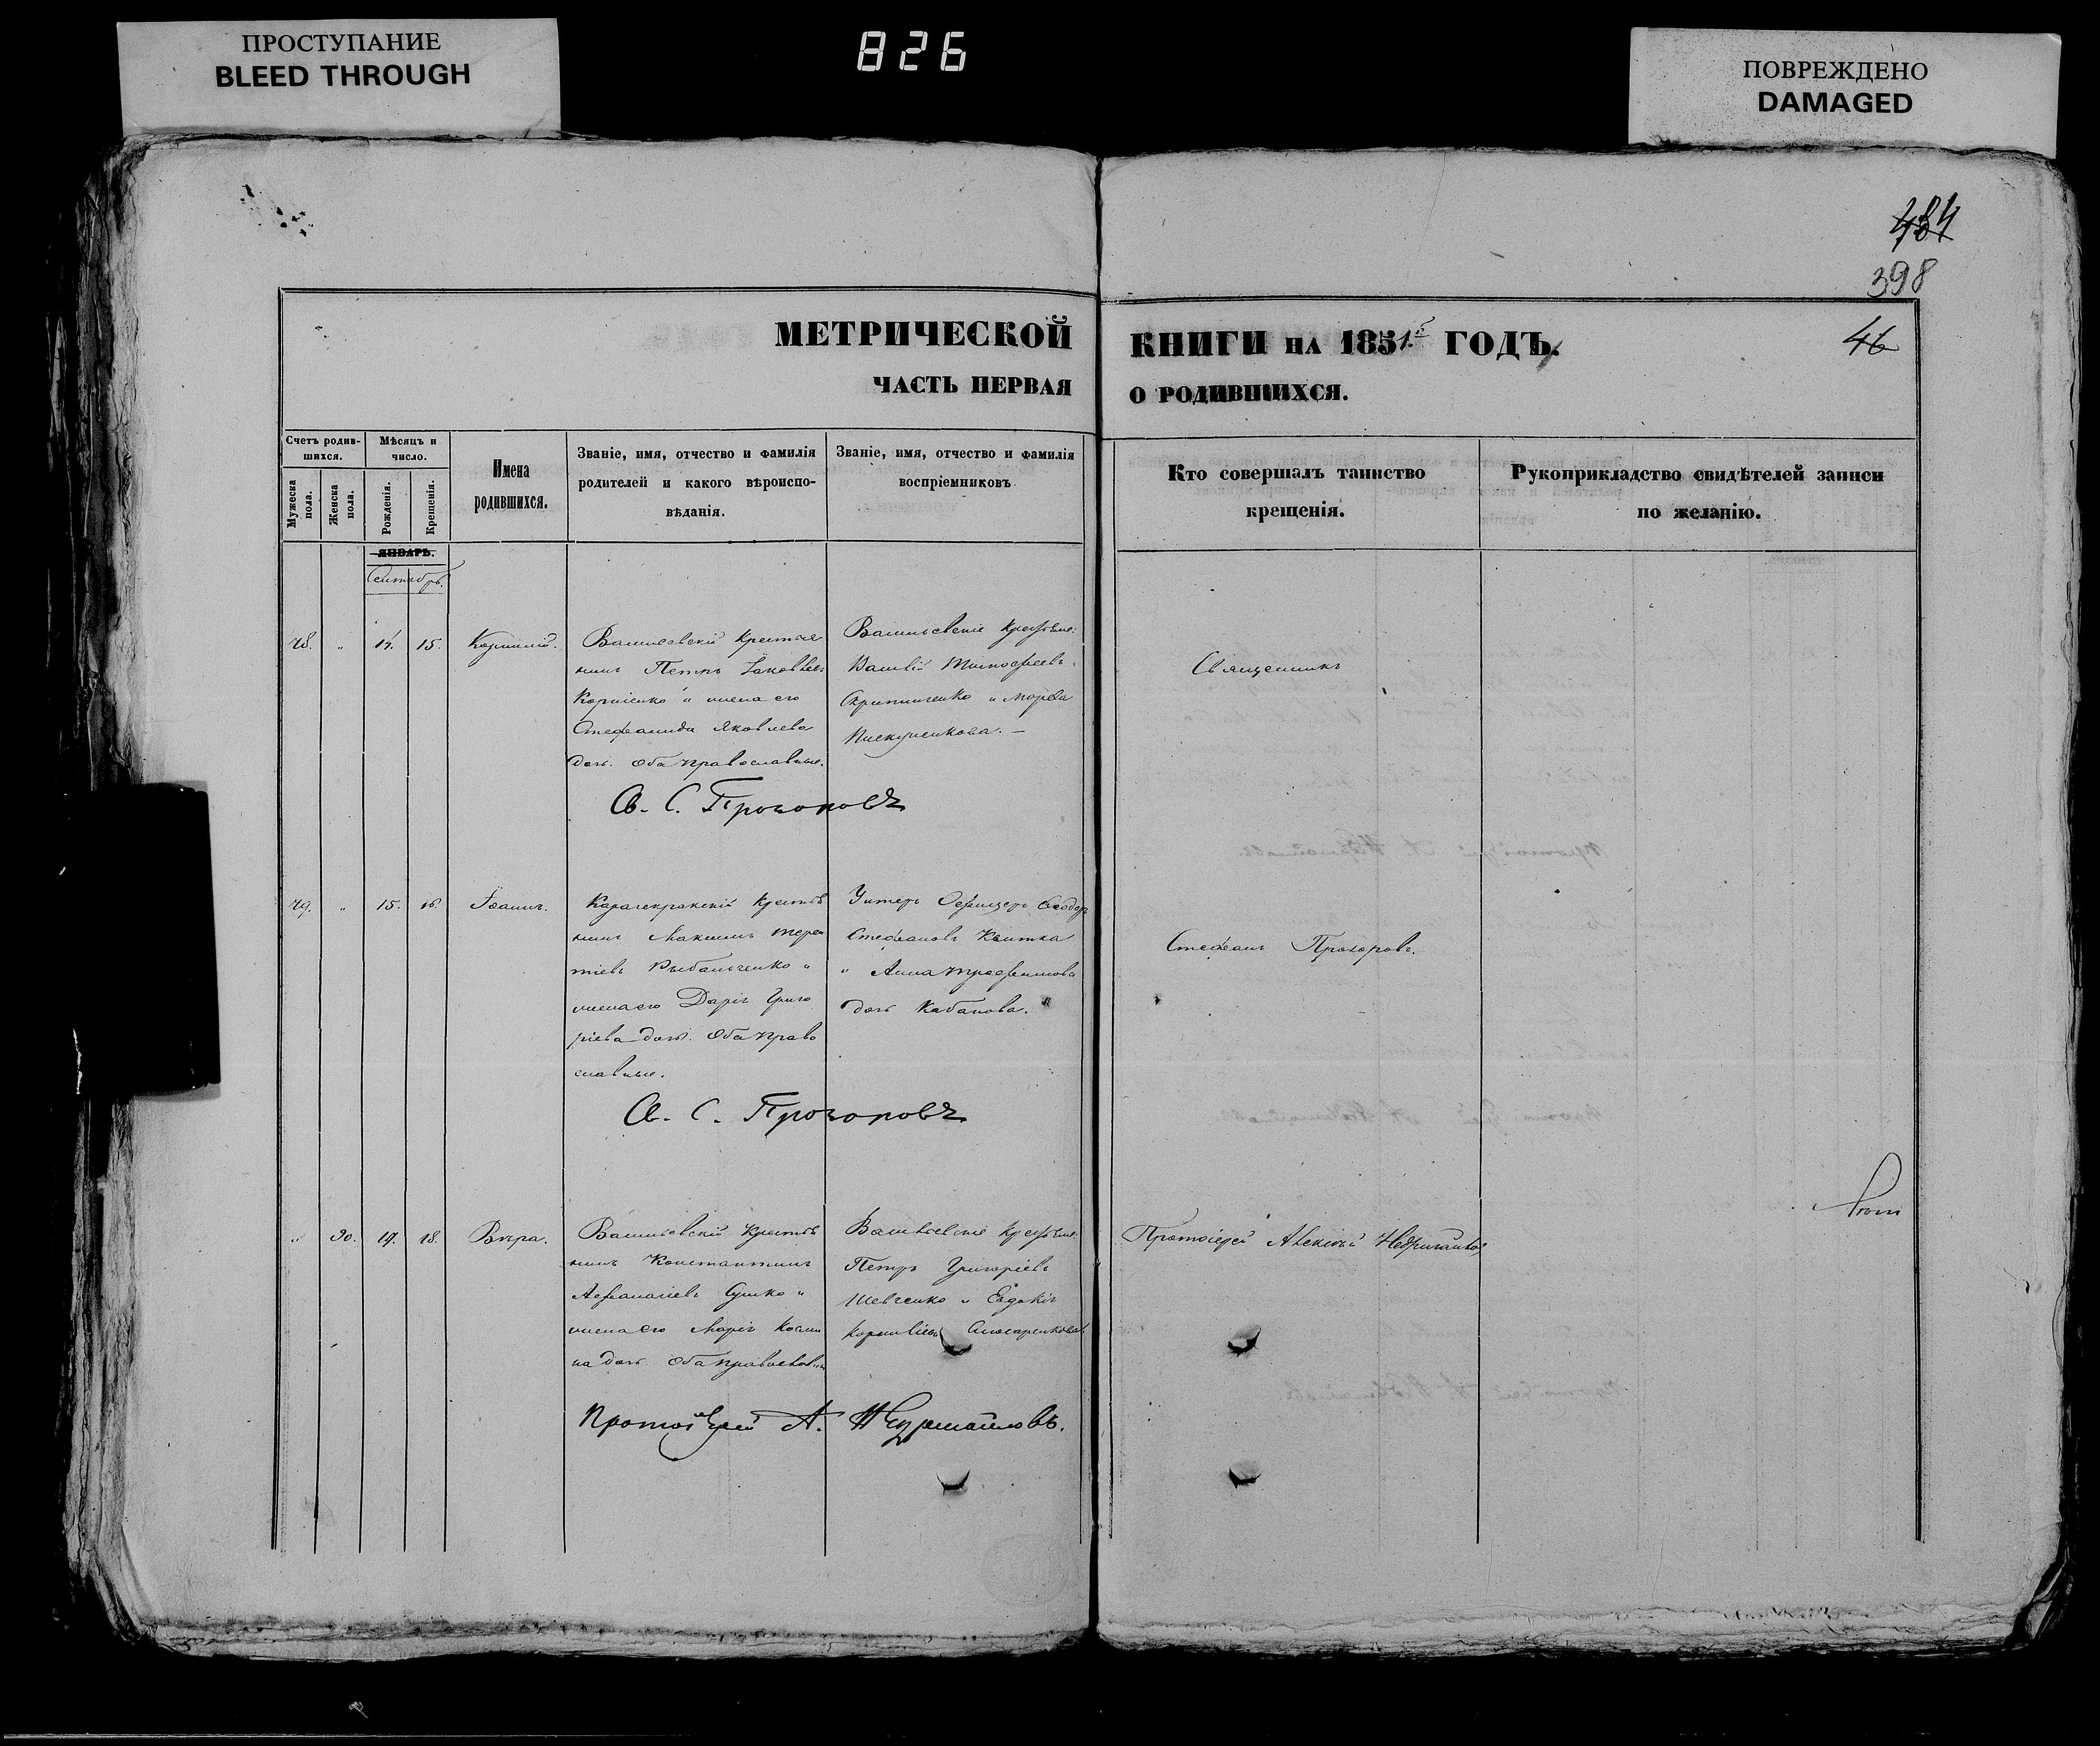 ПРОСТУПАНИЕ
BLEED THROUGH
826
ПОВРЕЖДЕНО
DAMAGED
484
398
46
МЕТРИЧЕСКОЙ
ЧАСТЬ ПЕРВАЯ
КНИГИ НА 1851. ГОДЪ.
О РОДИВШИХСЯ.
Счетъ родив-
шихся.
Мужеска
пола.
Женска
пола.
Мѣсяцъ и
число.
Рожденія.
Крещенія.
Имена
родившихся.
Званіе, имя, отчество и фамилія
родителей и какого вѣроиспо-
вѣданія.
Званіе, имя, отчество и фамилія
воспріемниковъ.
Кто совершалъ таинство
крещенія.
Рукоприкладство свидѣтелей записи
по желанію.
ЯНВАРЬ.
Сентябрь.
14. 15.
Васильевскій крестья
нинъ Петръ Іаковлевъ
Корніенко и жена его
Стефанида Яковлева
дочь. Оба православные.
Васильевскіе крестьяне:
Тимофеевъ
Скрипниченко и Марфа
Св. С. Прозоровъ
Священникъ
15. 16. Іоаннъ.
Карачекракскій крестья
нинъ Максимъ Терен
тіевъ Рыбальченко и
жена его Дарія Григо
ріева дочь. Оба право
славные.
Унтеръ Офицеръ Феодоръ
Стефановъ Квитка
и Анна Трофимова
дочь Кабанова.
Св. С. Прозоровъ
Стефанъ Прозоровъ.
30. 17. 18. Вѣра.
Васильевскій крестья
нинъ Константинъ
Афанасіевъ Сушко и
жена его Марія Косми
на дочь Оба православные
Васильевскіе крестьяне:
Петръ Григоріевъ
Шевченко и Евдокія
Слюсаренкова.
Протоіерей А.
Протоіерей Алексій